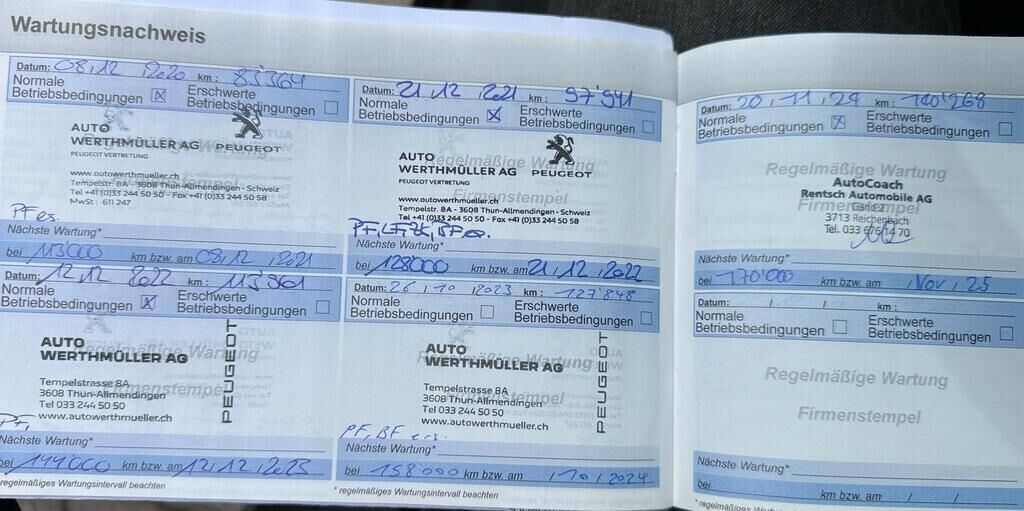 Wartungsnachweis
Datum: 08.12.2020 km: 83'364
Normale Betriebsbedingungen ☒ Erschwerte Betriebsbedingungen ☐
AUTO
WERTHMÜLLER AG PEUGEOT
PEUGEOT VERTRETUNG
www.autowerthmueller.ch
Tempelstr. 8A - 3608 Thun-Allmendingen - Schweiz
Tel +41 (0)33 244 50 50 - Fax +41 (0)33 244 50 58
MwSt : 611 247
PF es.
Nächste Wartung*
bei 113'000 km bzw. am 08.12.2021
Datum: 21.12.2021 km: 97'941
Normale Betriebsbedingungen ☒ Erschwerte Betriebsbedingungen ☐
Regelmäßige Wartung
Firmenstempel
AUTO
WERTHMÜLLER AG PEUGEOT
PEUGEOT VERTRETUNG
www.autowerthmueller.ch
Tempelstr. 8A - 3608 Thun-Allmendingen - Schweiz
Tel +41 (0)33 244 50 50 - Fax +41 (0)33 244 50 58
PF, LF, ZK, BF es.
Nächste Wartung*
bei 128000 km bzw. am 21.12.2022
Datum: 12.12.2022 km: 113'961
Normale Betriebsbedingungen ☒ Erschwerte Betriebsbedingungen ☐
Regelmäßige Wartung
Firmenstempel
AUTO
WERTHMÜLLER AG
PEUGEOT
Tempelstrasse 8A
3608 Thun-Allmendingen
Tel 033 244 50 50
www.autowerthmueller.ch
PF,
Nächste Wartung*
bei 144000 km bzw. am 12.12.2023
* regelmäßiges Wartungsintervall beachten
Datum: 26.10.2023 km: 127'848
Normale Betriebsbedingungen ☐ Erschwerte Betriebsbedingungen ☐
Regelmäßige Wartung
Firmenstempel
AUTO
WERTHMÜLLER AG
PEUGEOT
Tempelstrasse 8A
3608 Thun-Allmendingen
Tel 033 244 50 50
www.autowerthmueller.ch
PF, BF ers.
Nächste Wartung*
bei 158000 km bzw. am /10/2024
* regelmäßiges Wartungsintervall beachten
Datum: 20.11.24 km: 140'268
Normale Betriebsbedingungen ☒ Erschwerte Betriebsbedingungen ☐
Regelmäßige Wartung
Firmenstempel
AutoCoach
Rentsch Automobile AG
3713 Reichenbach
Tel. 033 676 14 70
Nächste Wartung*
bei 170'000 km bzw. am / Nov / 25
Datum: / / km:
Normale Betriebsbedingungen ☐ Erschwerte Betriebsbedingungen ☐
Regelmäßige Wartung
Firmenstempel
Nächste Wartung*
bei km bzw. am / /
* regelmäßiges Wartungsintervall beachten